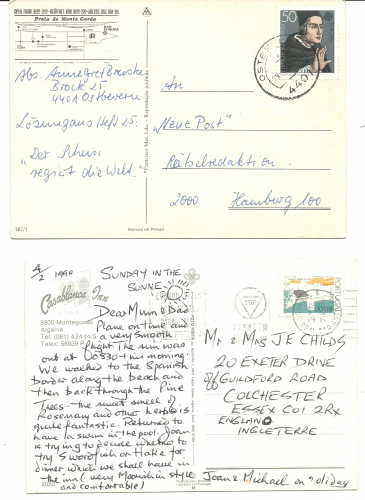 Praia de Monte Gordo
Abs. Annegret
Brock 25
4401 Ostbevern
Lösung aus Heft 25:
"Der Schein
regiert die Welt."
An
"Neue Post"
Rätselredaktion
2000 Hamburg 100
50
4401
187/1
4/2 1990
SUNDAY IN THE
SUNNE
Casablanca Inn
8900 Montegordo
Algarve
Dear Mum & Dad
Plane on time and
a very smooth
flight. The sun was
out at 0830 this morning.
We walked to the Spanish
border along the beach and
then back through the Pine
Trees - the sweet smell of
Rosemary and other herbs is
quite fantastic. Returned to
have a swim in the pool. Joan
is trying to decide whether to
try Swordfish or Hake for
dinner which we shall have in
the inn (very Moorish in style
and comfortable)
PORTUGAL
Mr & Mrs J E CHILDS
20 EXETER DRIVE
Off GUILDFORD ROAD
COLCHESTER
ESSEX CO1 2RX
ENGLAND
INGLETERRE
Joan & Michael on 'oliday
2032